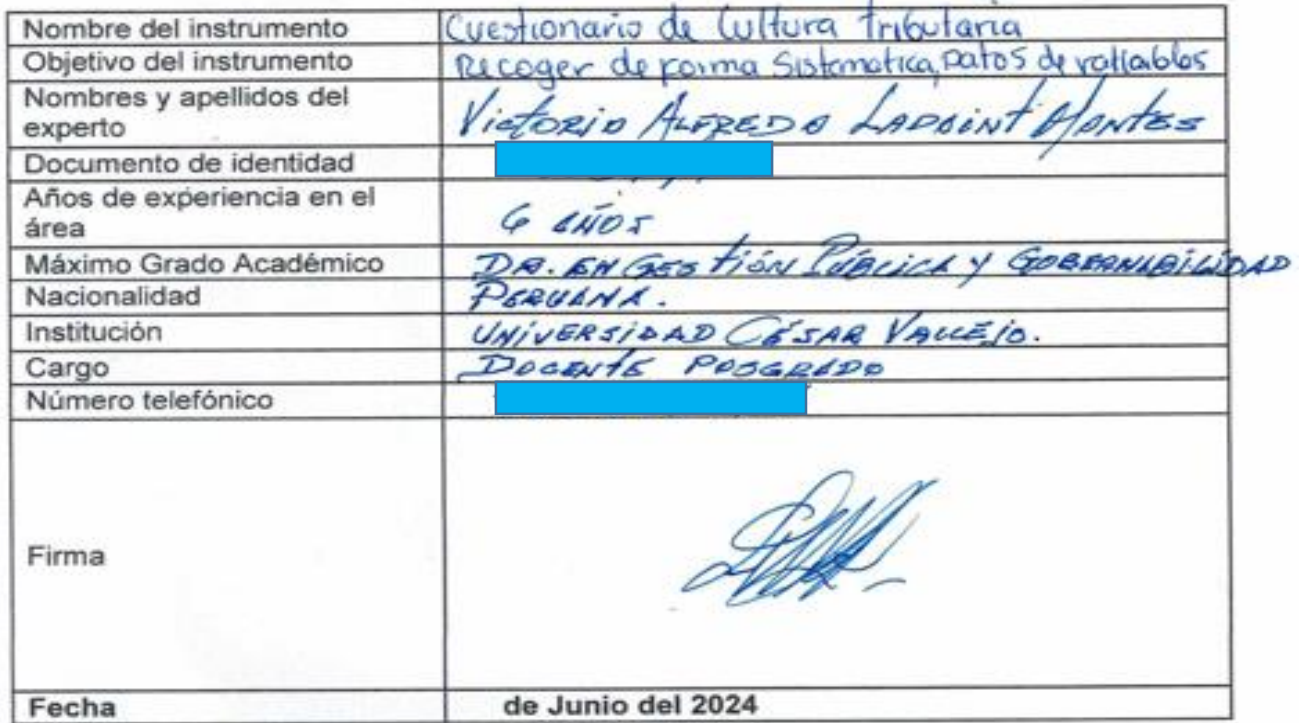 Nombre del instrumento Cuestionario de Cultura Tributaria
Objetivo del instrumento Recoger de forma Sistematica, Datos de variables
Nombres y apellidos del
experto Victorio Alfredo Montes
Documento de identidad
Años de experiencia en el
área 6 AÑOS
Máximo Grado Académico DR. EN GESTIÓN PÚBLICA Y GOBERNABILIDAD
Nacionalidad PERUANA.
Institución UNIVERSIDAD CÉSAR VALLEJO.
Cargo DOCENTE POSGRADO
Número telefónico
Firma
Fecha de Junio del 2024